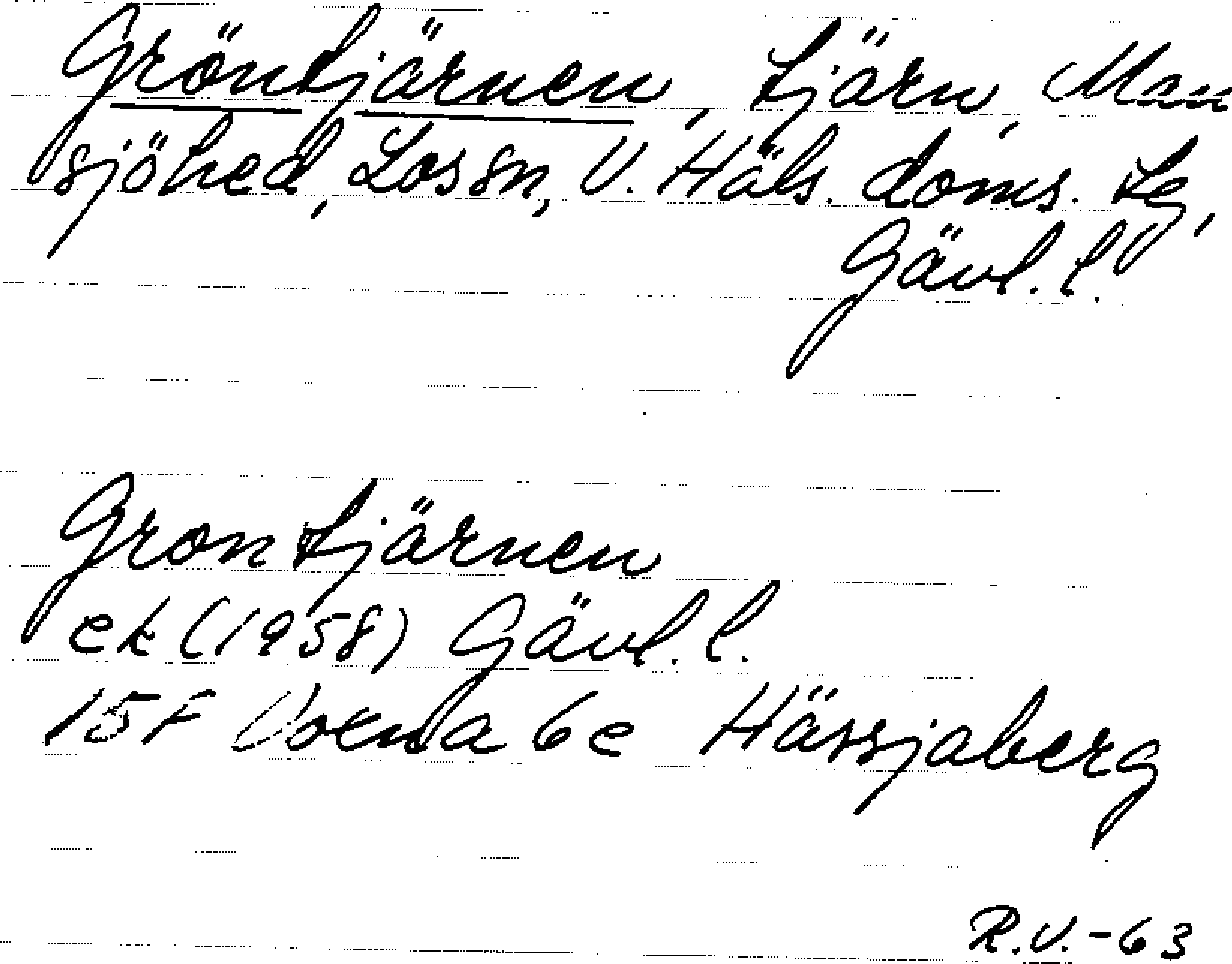 Gröntjärnen, tjärn, Man
sjöhed, Los sn, V. Häls. doms. tg,
Gävl. l.
Grontjärnen
ek (1958) Gävl. l.
15F Voxna 6e Hässjaberg
R.V.-63